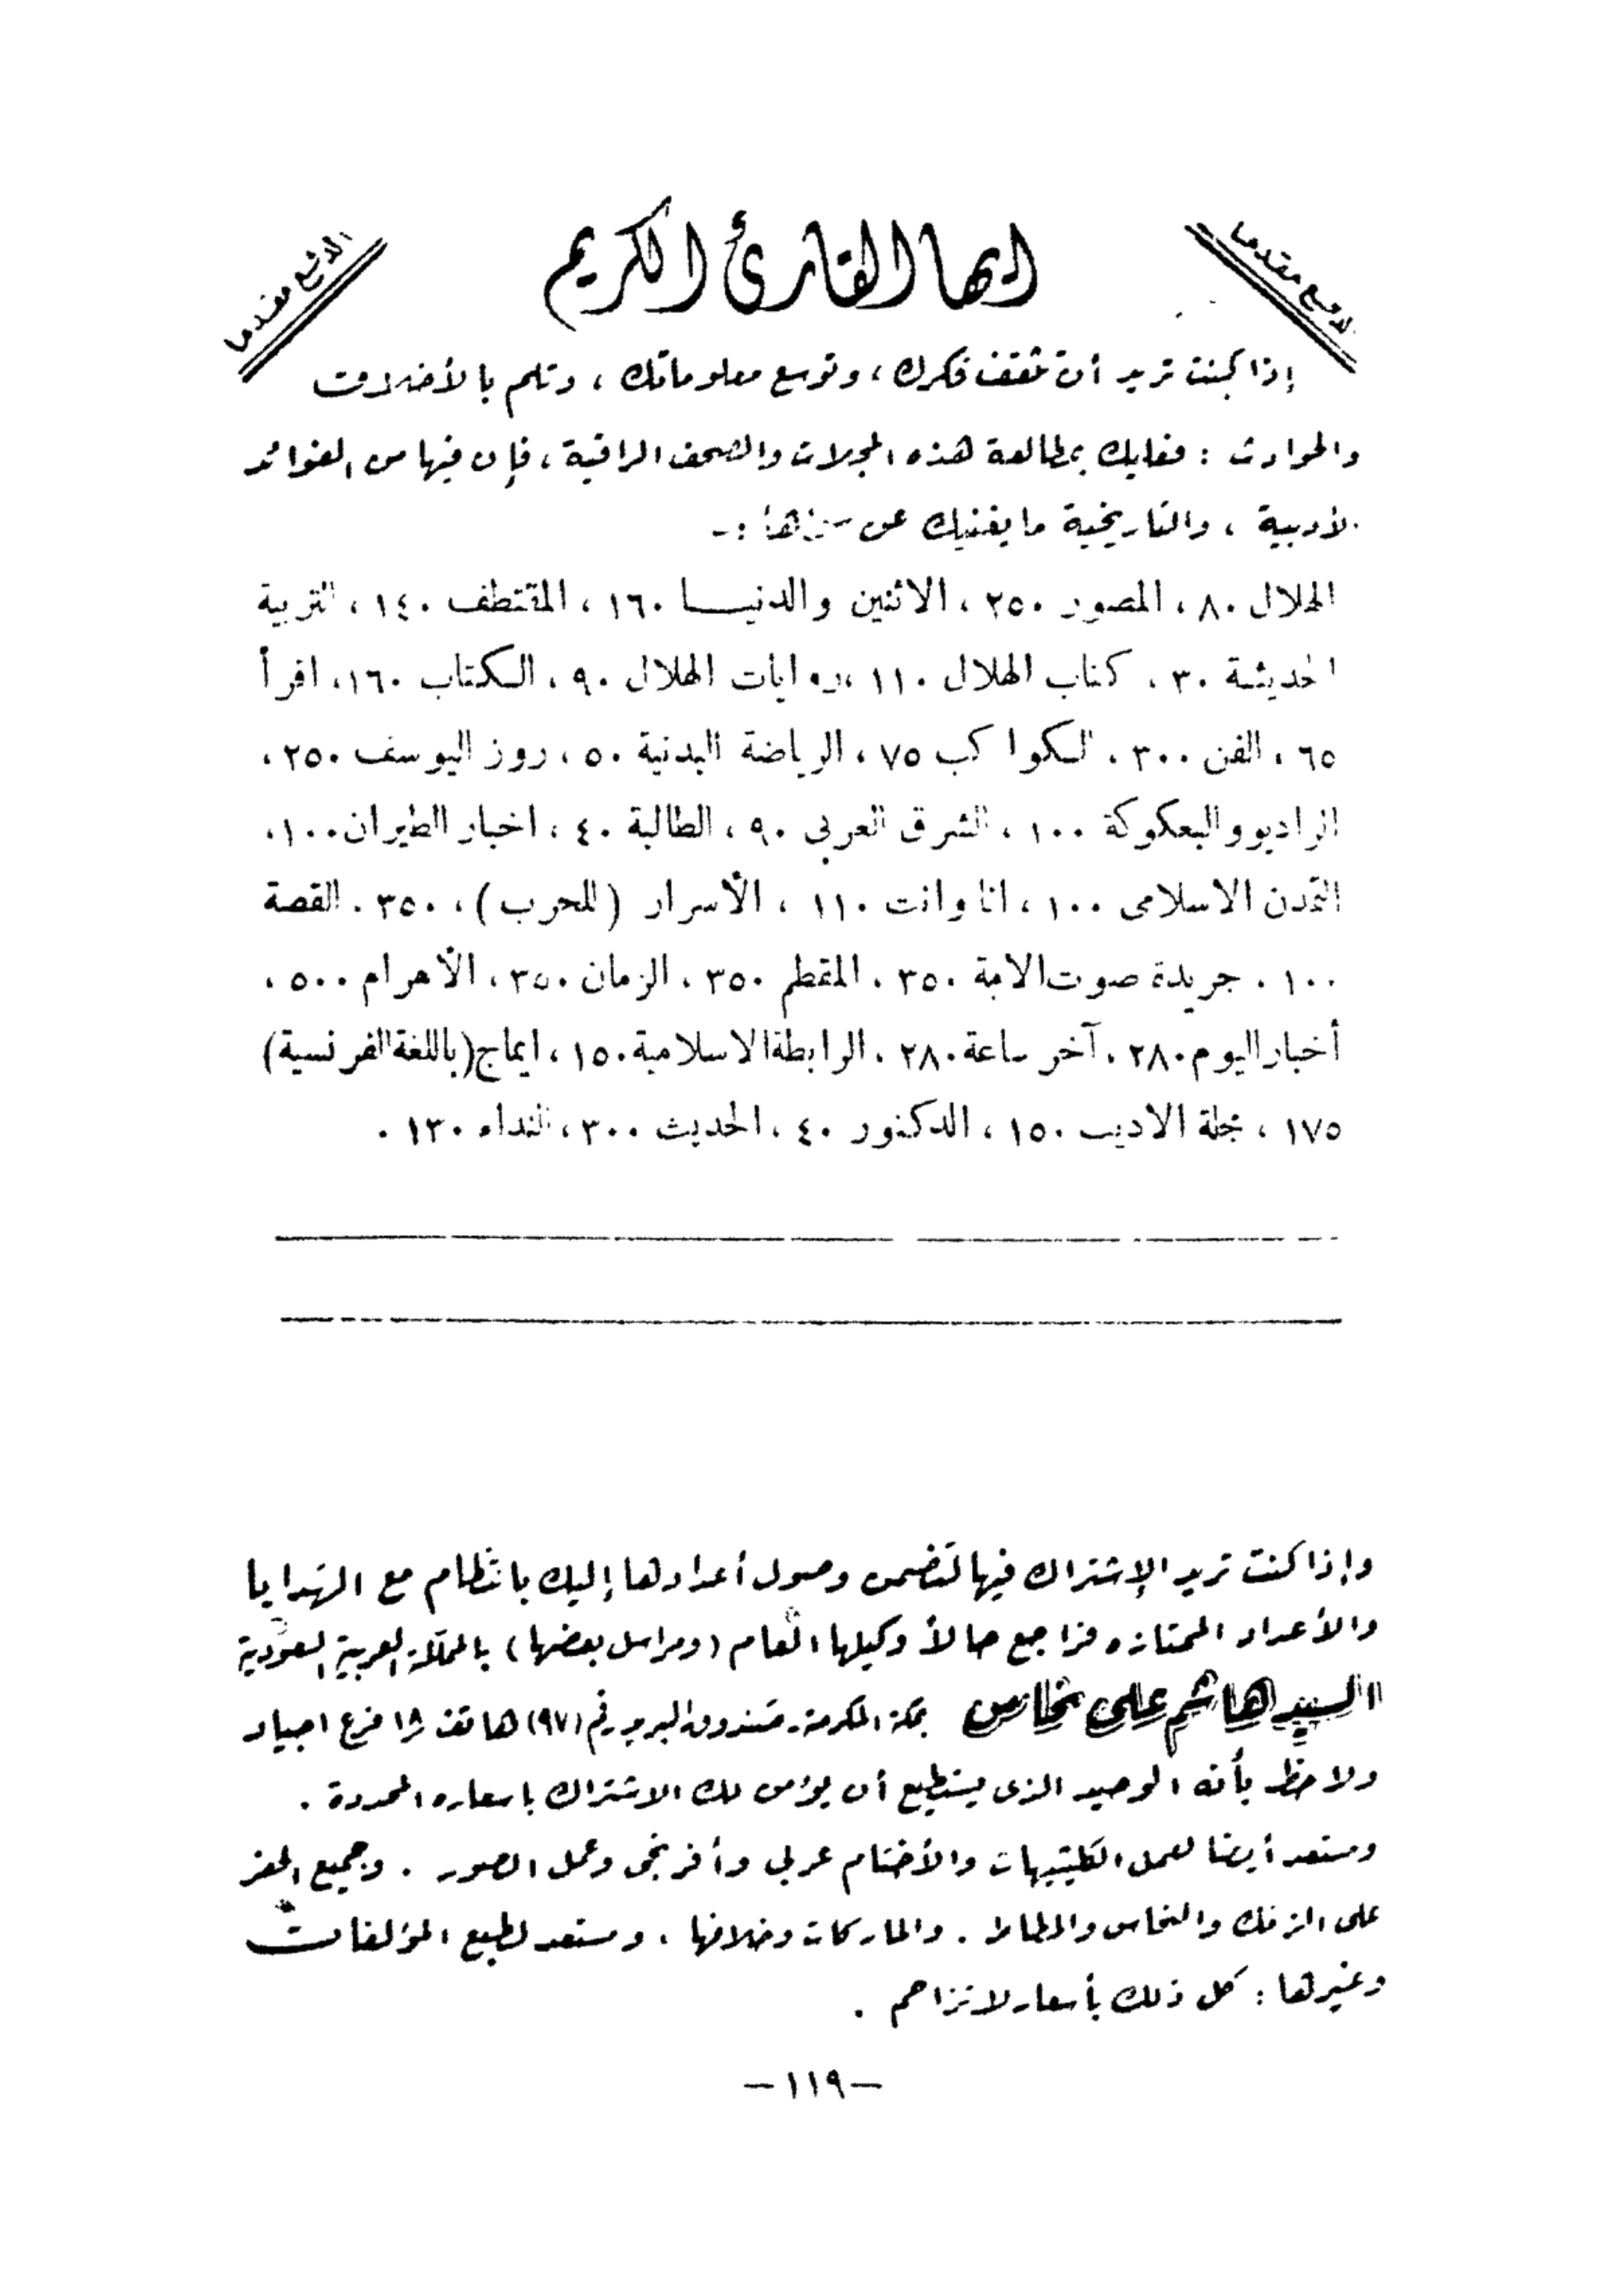 الدفع مقدما
ايها القارئ الكريم
الدفع مقدما
إذا كنت تريد أن تثقف فكرك ، وتوسع معلوماتك ، وتلم بالأخلاق
والحوادث : فعليك بمطالعة هذه المجلات والصحف الراقية ، فإن فيها من الفوائد
الأدبية ، والتاريخية ما يغنيك عن :-
الهلال ٨٠ ، المصور ٢٥٠ ، الاثنين والدنيا ١٦٠ ، المقتطف ١٤٠ ، التربية
الحديثة ٣٠ ، كتاب الهلال ١١٠ ، روايات الهلال ٩٠ ، الكتاب ١٦٠ ، اقرأ
٦٥ ، الفن ٣٠٠ ، الكواكب ٧٥ ، الرياضة البدنية ٥٠ ، روز اليوسف ٢٥٠ ،
الراديو والبعكوكة ١٠٠ ، الشرق العربي ٩٠ ، الطالبة ٤٠ ، اخبار الطيران ١٠٠ ،
التمدن الاسلامى ١٠٠ ، انا وانت ١١٠ ، الأسرار (للحرب) ، ٣٥٠ . القصة
١٠٠ . جريدة صوت الامة ٣٥٠ ، المقطم ٣٥٠ ، الزمان ٣٥٠ ، الأهرام ٥٠٠ ،
أخبار اليوم ٢٨٠ ، آخر ساعة ٢٨٠ ، الرابطة الاسلامية ١٥٠ ، ايماج (باللغة الفرنسية)
١٧٥ ، مجلة الاديب ١٥٠ ، الدكتور ٤٠ ، الحديث ٣٠٠ ، النداء ١٣٠ .
وإذا كنت تريد الإشتراك فيها لتضمن وصول أعدادها إليك بانتظام مع الهدايا
والأعداد الممتازه فراجع حالاً وكيلها العام (ومراسل بعضها) بالمملكة العربية السعودية
السيد هاشم على نحاس بمكة المكرمة - صندوق البريد رقم (٩٧) هاتف ١٨ فرع اجياد
ولاحظ بأنه الوحيد الذى يستطيع أن يؤمن لك الاشتراك باسعاره المحددة .
ومستعد أيضا لعمل الكليشيهات والأختام عربي وأفرنجى وعمل الصور . وجميع الحفر
على الزنك والنحاس والمطاط . والماركات وخلافها ، ومستعد لطبع المؤلفات
وغيرها : كل ذلك بأسعار لا تزاحم .
— ١١٩ —